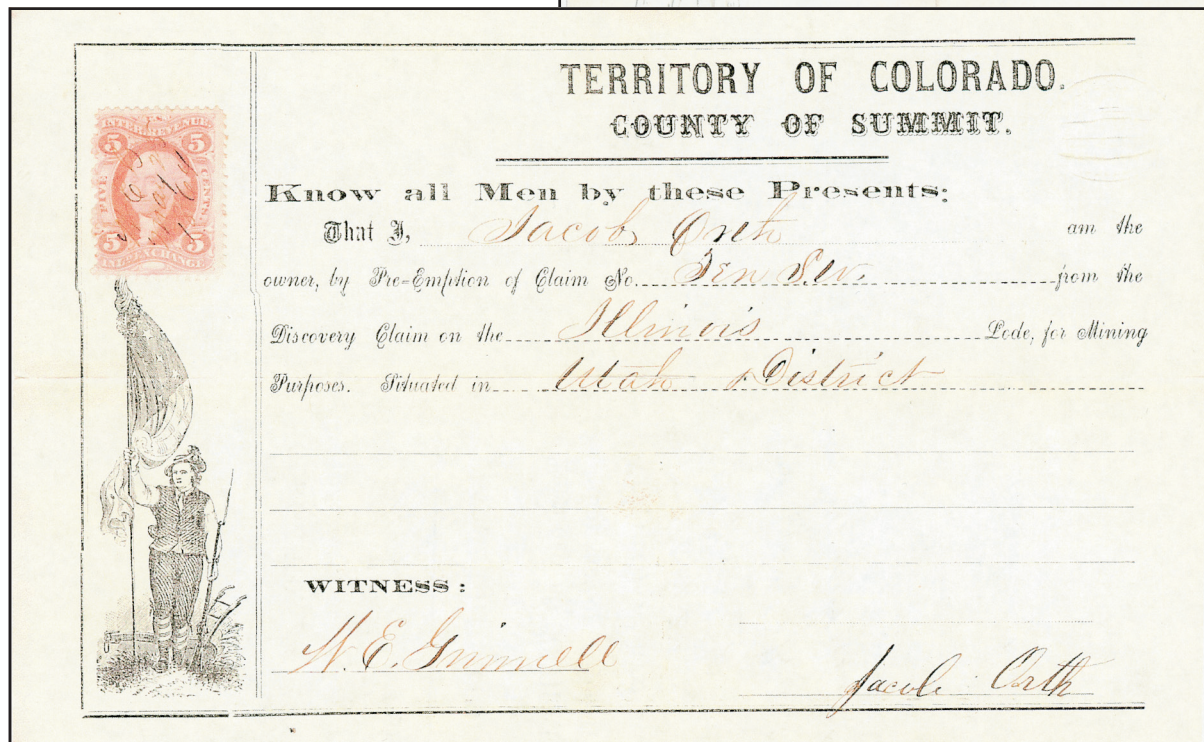 TERRITORY OF COLORADO.
COUNTY OF SUMMIT.
Know all Men by these Presents:
That I, Jacob Orth am the
owner, by Pre=Emption of Claim No. Ten S.W. from the
Discovery Claim on the Illinois Lode, for Mining
Purposes. Situated in Utah District
WITNESS:
W. E. Grinnell
Jacob Orth
5 5
FIVE CENTS
5 5
INT. EXCHANGE